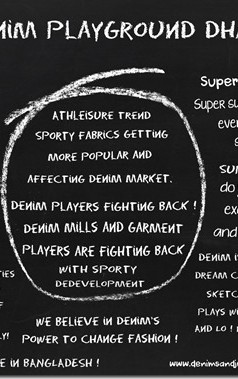 NIM PLAYGROUND DHA
ATHLEISURE TREND
SPORTY FABRICS GETTING
MORE POPULAR AND
AFFECTING DENIM MARKET.
DENIM PLAYERS FIGHTING BACK !
DENIM MILLS AND GARMENT
PLAYERS ARE FIGHTING BACK
WITH SPORTY
DEDEVELOPMENT
WE BELIEVE IN DENIM'S
POWER TO CHANGE FASHION !
TIES
LY!
E IN BANGLADESH !
Super
Super su
eve
s
su
do
ex
and
DENIM I
DREAM C
SKETC
PLAYS W
AND LO ! I
www.denimsandj